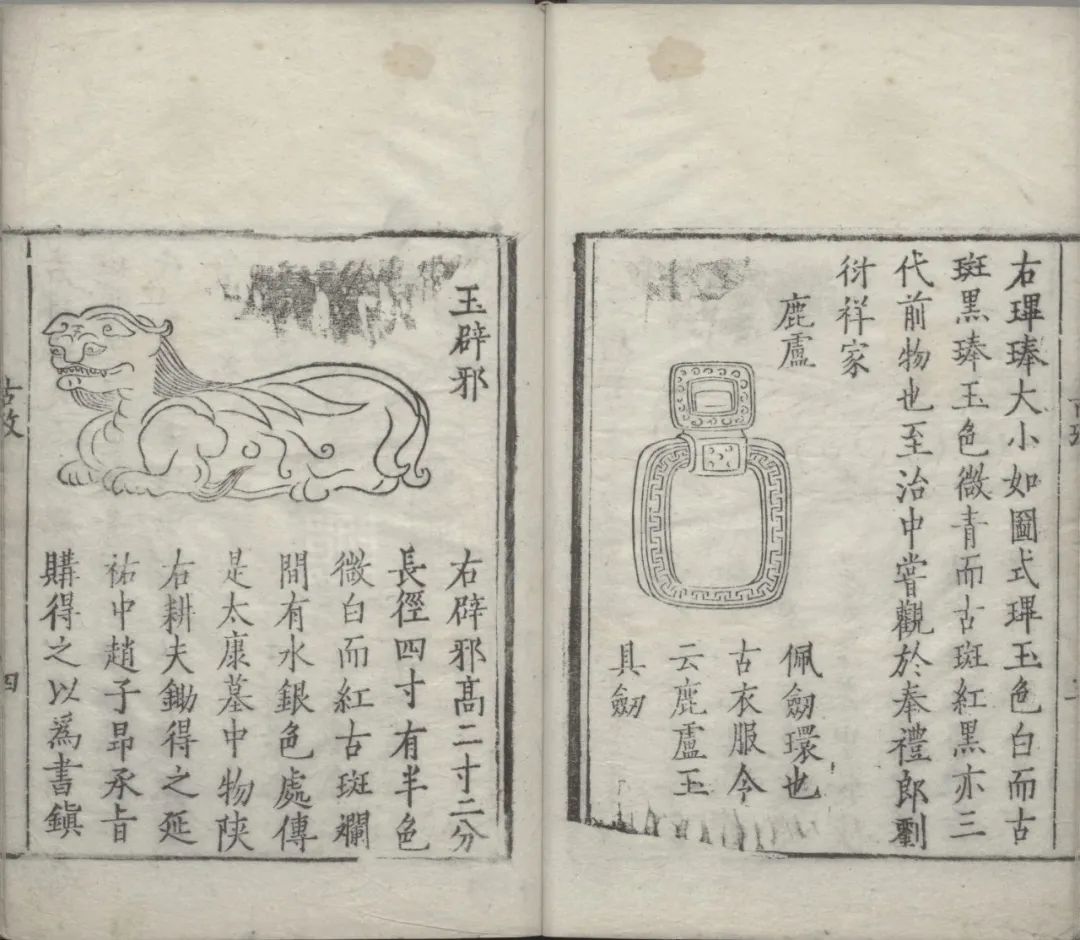 右琕琫大小如圖式琕玉色白而古
斑黑琫玉色微青而古斑紅黑亦三
代前物也至治中嘗觀於奉禮郎劉
衍祥家
鹿盧
佩劔環也
古衣服令
云鹿盧玉
具劔
玉辟邪
右辟邪高二寸二分
長徑四寸有半色
微白而紅古斑斕
間有水銀色處傳
是太康墓中物陜
右耕夫鋤得之延
祐中趙子昂承旨
購得之以爲書鎭
四